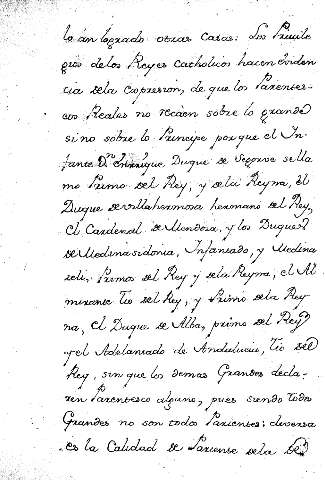 lo àn logrado otras Casas: Los Privile
gios de los Reyes Catholicos hacen eviden
cia de la expresion, de que los Parentes-
cos Reales no recáen sobre lo grande
sino sobre lo Principe porque el In-
fante Dn. Enrrique Duque de Segorve se lla
mo Primo del Rey, y de la Reyna, el
Duque de villahermosa hermano del Rey,
el Cardenal de Mendoza, y los Duques
de Medinasidonia, Infantado, y Medina
celi, Primos del Rey y de la Reyna, el Al
mirante Tio del Rey, y Primo de la Rey
na, el Duque de Alba, primo del Rey
y el Adelantado de Andalucia, Tio del
Rey, sin que los demas Grandes decla-
ren Parentesco alguno, pues siendo todos
Grandes no son todos Parientes: diversa
es la Calidad de Pariente de la de